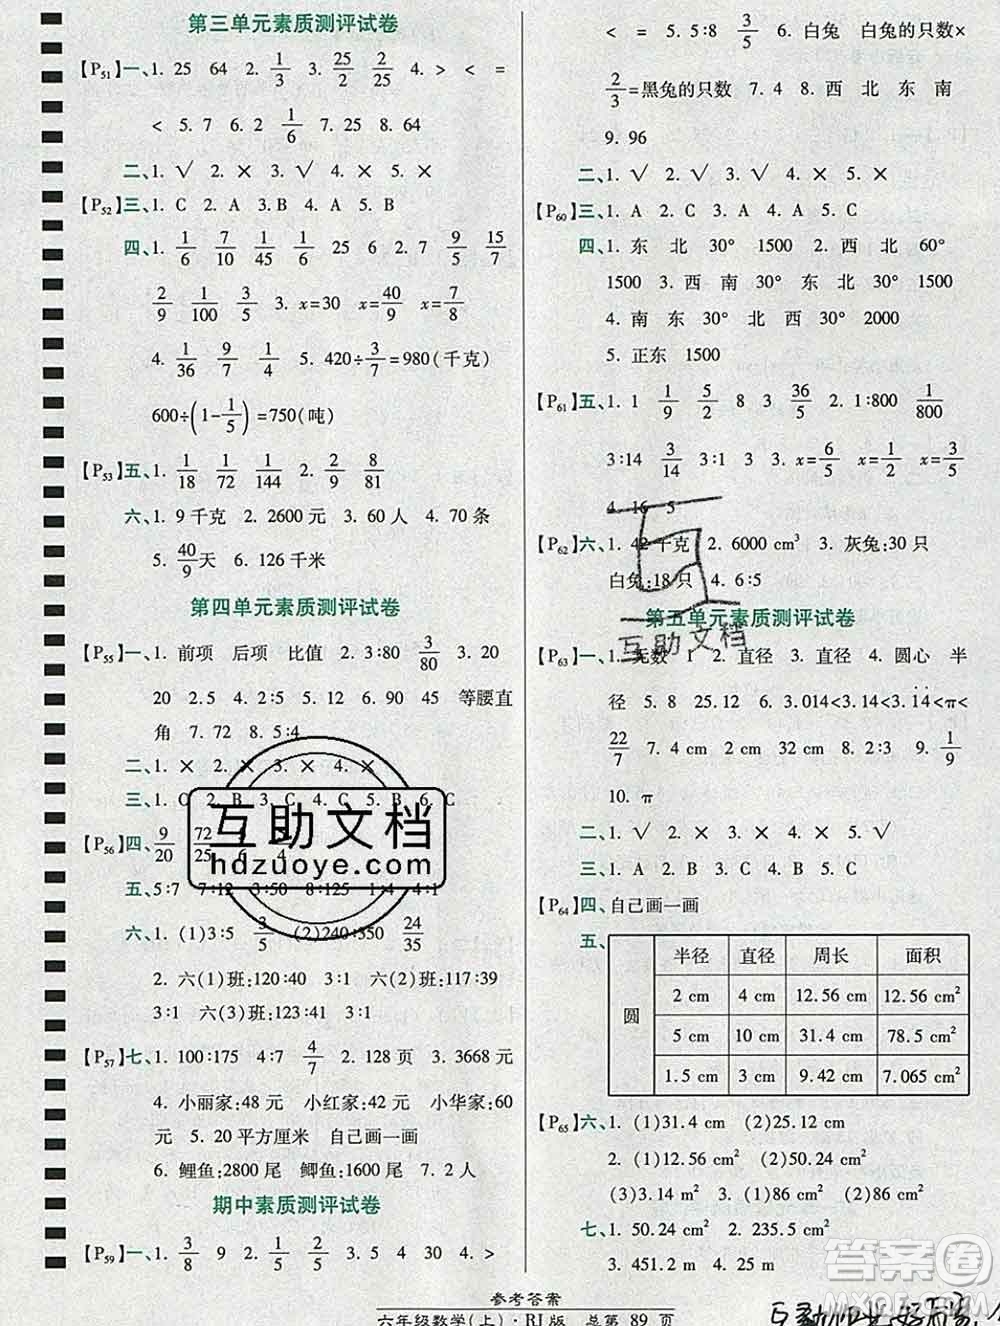 第三单元素质测评试卷
【P51】一、1. 25 64 2. 1/3 3. 25/2 2/25 4. > < =
< 5. 7 6. 2 1/6 7. 25 8. 64
二、1. √ 2. × 3. × 4. √ 5. ×
【P52】三、1. C 2. A 3. B 4. A 5. B
四、1. 1/6 7/10 1/45 1/144 25 6 2. 7 9/5 15/7
2/9 1/100 3/5 3. x=30 x=40/9 x=7/8
4. 1/36 9/7 1/4 5. 420÷3/7=980(千克)
600÷(1-1/5)=750(吨)
【P53】五、1. 1/18 1/72 1/144 2. 2/9 8/81
六、1. 9千克 2. 2600元 3. 60人 4. 70条
5. 40/9天 6. 126千米
第四单元素质测评试卷
【P55】一、1. 前项 后项 比值 2. 3∶80 3/80 3. 20
20 2.5 4. 2∶5 5. 15 6. 90 45 等腰直
角 7. 72 8. 5∶4
二、1. × 2. × 3. × 4. ×
三、1. C 2. B 3. B 4. B 5. B 6. C
【P56】四、9/20 72/25
五、5∶7 7∶12 3∶50 8∶125 1∶4 4∶1
六、1. (1)3∶5 3/5 (2)240∶350 24/35
2. 六(1)班:120∶40 3∶1 六(2)班:117∶39
3∶1 六(3)班:123∶41 3∶1
【P57】七、1. 100∶175 4∶7 4/7 2. 128页 3. 3668元
4. 小丽家:48元 小红家:42元 小华家:54
元 5. 20平方厘米 自己画一画
6. 鲤鱼:2800尾 鲫鱼:1600尾 7. 2人
期中素质测评试卷
【P59】一、1. 3/8 9 2. 1/5 2/5 3. 5 4 30 4. >
< = 5. 5∶8 3/5 6. 白兔 白兔的只数×
2/3=黑兔的只数 7. 4 8. 西 北 东 南
9. 96
二、1. √ 2. √ 3. √ 4. × 5. ×
【P60】三、1. A 2. C 3. A 4. A 5. C
四、1. 东 北 30° 1500 2. 西 北 60°
1500 3. 西 南 30° 东 北 30° 2500
4. 南 东 30° 北 西 30° 2000
5. 正东 1500
【P61】五、1. 1 1/9 5/2 8 3 36/5 2. 1∶800 1/800
3∶14 3/14 3∶1 3 3. x=6/5 x=1/2 x=3/5
4. 16 5
【P62】六、1. 42千克 2. 6000 cm³ 3. 灰兔:30只
白兔:18只 4. 6∶5
第五单元素质测评试卷
【P63】一、1. 无数 1 2. 直径 3. 直径 4. 圆心 半
径 5. 8 25.12 6. 3.014<3.14<3.1̇4̇<π<
22/7 7. 4 cm 2 cm 8. 3∶2 9∶4 9. 1/9
10. π
二、1. √ 2. × 3. × 4. × 5. √
三、1. A 2. B 3. C 4. A 5. C
【P64】四、自己画一画
五、
圆 半径 直径 周长 面积
2 cm 4 cm 12.56 cm 12.56 cm²
5 cm 10 cm 31.4 cm 78.5 cm²
1.5 cm 3 cm 9.42 cm 7.065 cm²
【P65】六、1. (1)31.4 cm (2)25.12 cm
2. (1)12.56 cm² (2)50.24 cm²
(3)3.14 m² 3. (1)86 cm² (2)86 cm²
七、1. 50.24 cm² 2. 235.5 cm²
3. 451.2 m 4.
参考答案
六年级数学(上)·RJ版 总第 89 页
互助文档
hdzuoye.com
互助文档
答案圈